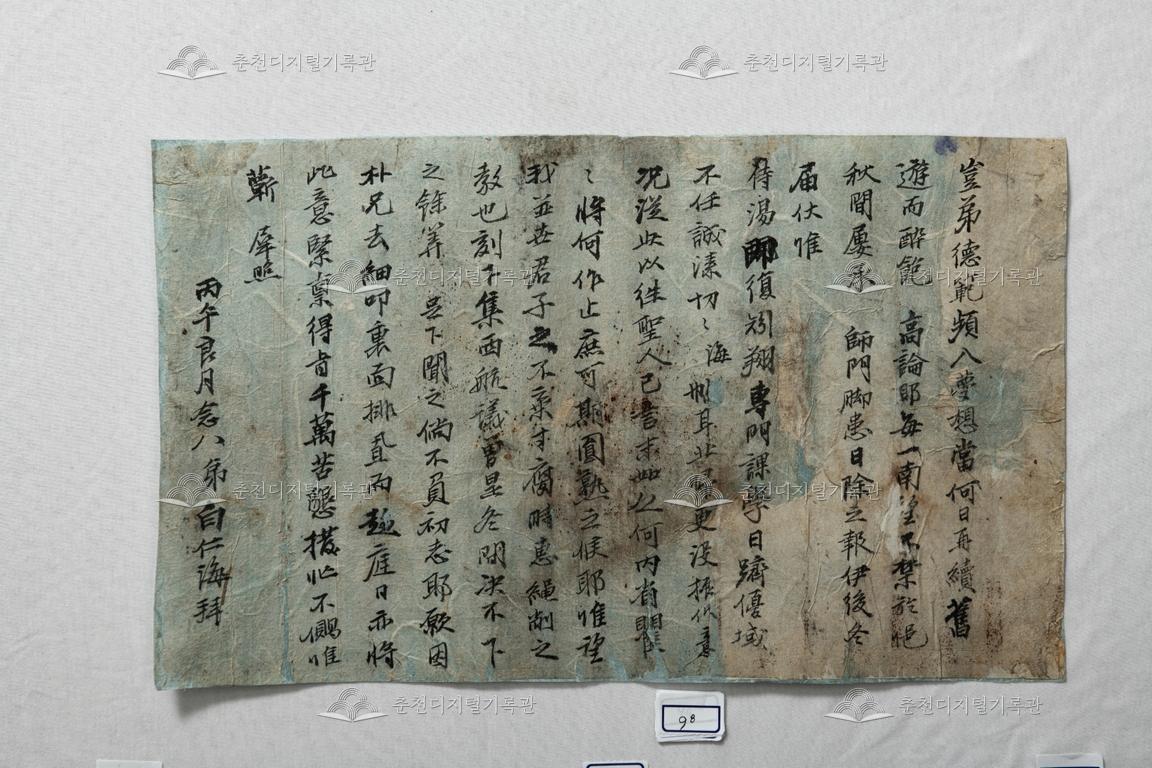 豈弟德範頻入夢想當何日再續舊
遊而酔飽 高論耶每一南望不禁於悒
秋間屢承 師門脚患日除之報伊後冬
届伏惟
侍湯 復 翔專門課學日躋優域
不任誠溱切〻海 耳北 更没振作意
况從此以往聖人已 人何內省
〻將何作止庶可期圓熟之候耶惟望
我並世君子之不棄才腐時惠繩 之
敎也刻下集西航議曾星冬間决不下
之餘筭 岳下聞之倘不負初志耶厥因
朴兄去細叩裏面排置而 庭日亦將
此意緊禀得旨千萬苦懇 不 惟
蘄 犀照
丙午良月念八 弟 白仁海拜
98
춘천디지털기록관
춘천디지털기록관
춘천디지털기록관
춘천디지털기록관
춘천디지털기록관
춘천디지털기록관
춘천디지털기록관
춘천디지털기록관